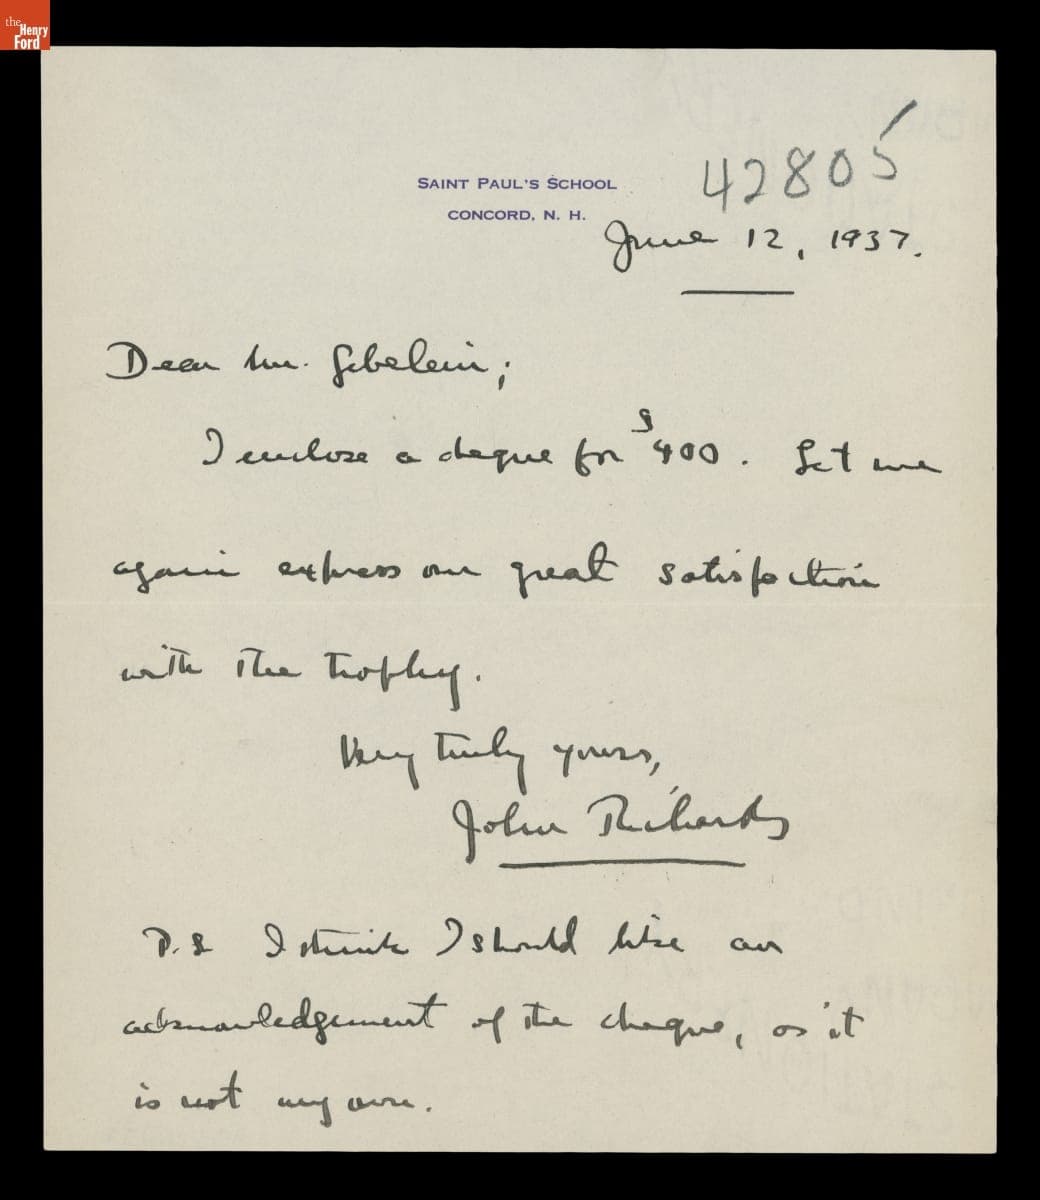 the
Henry
Ford
42805
SAINT PAUL'S SCHOOL
CONCORD, N. H.
June 12, 1937.
Dear Mr. Gebelein;
I enclose a cheque for $400. Let me
again express our great satisfaction
with the trophy.
Very truly yours,
John Richards
P.S I think I should like an
acknowledgement of the cheque, as it
is not my own.